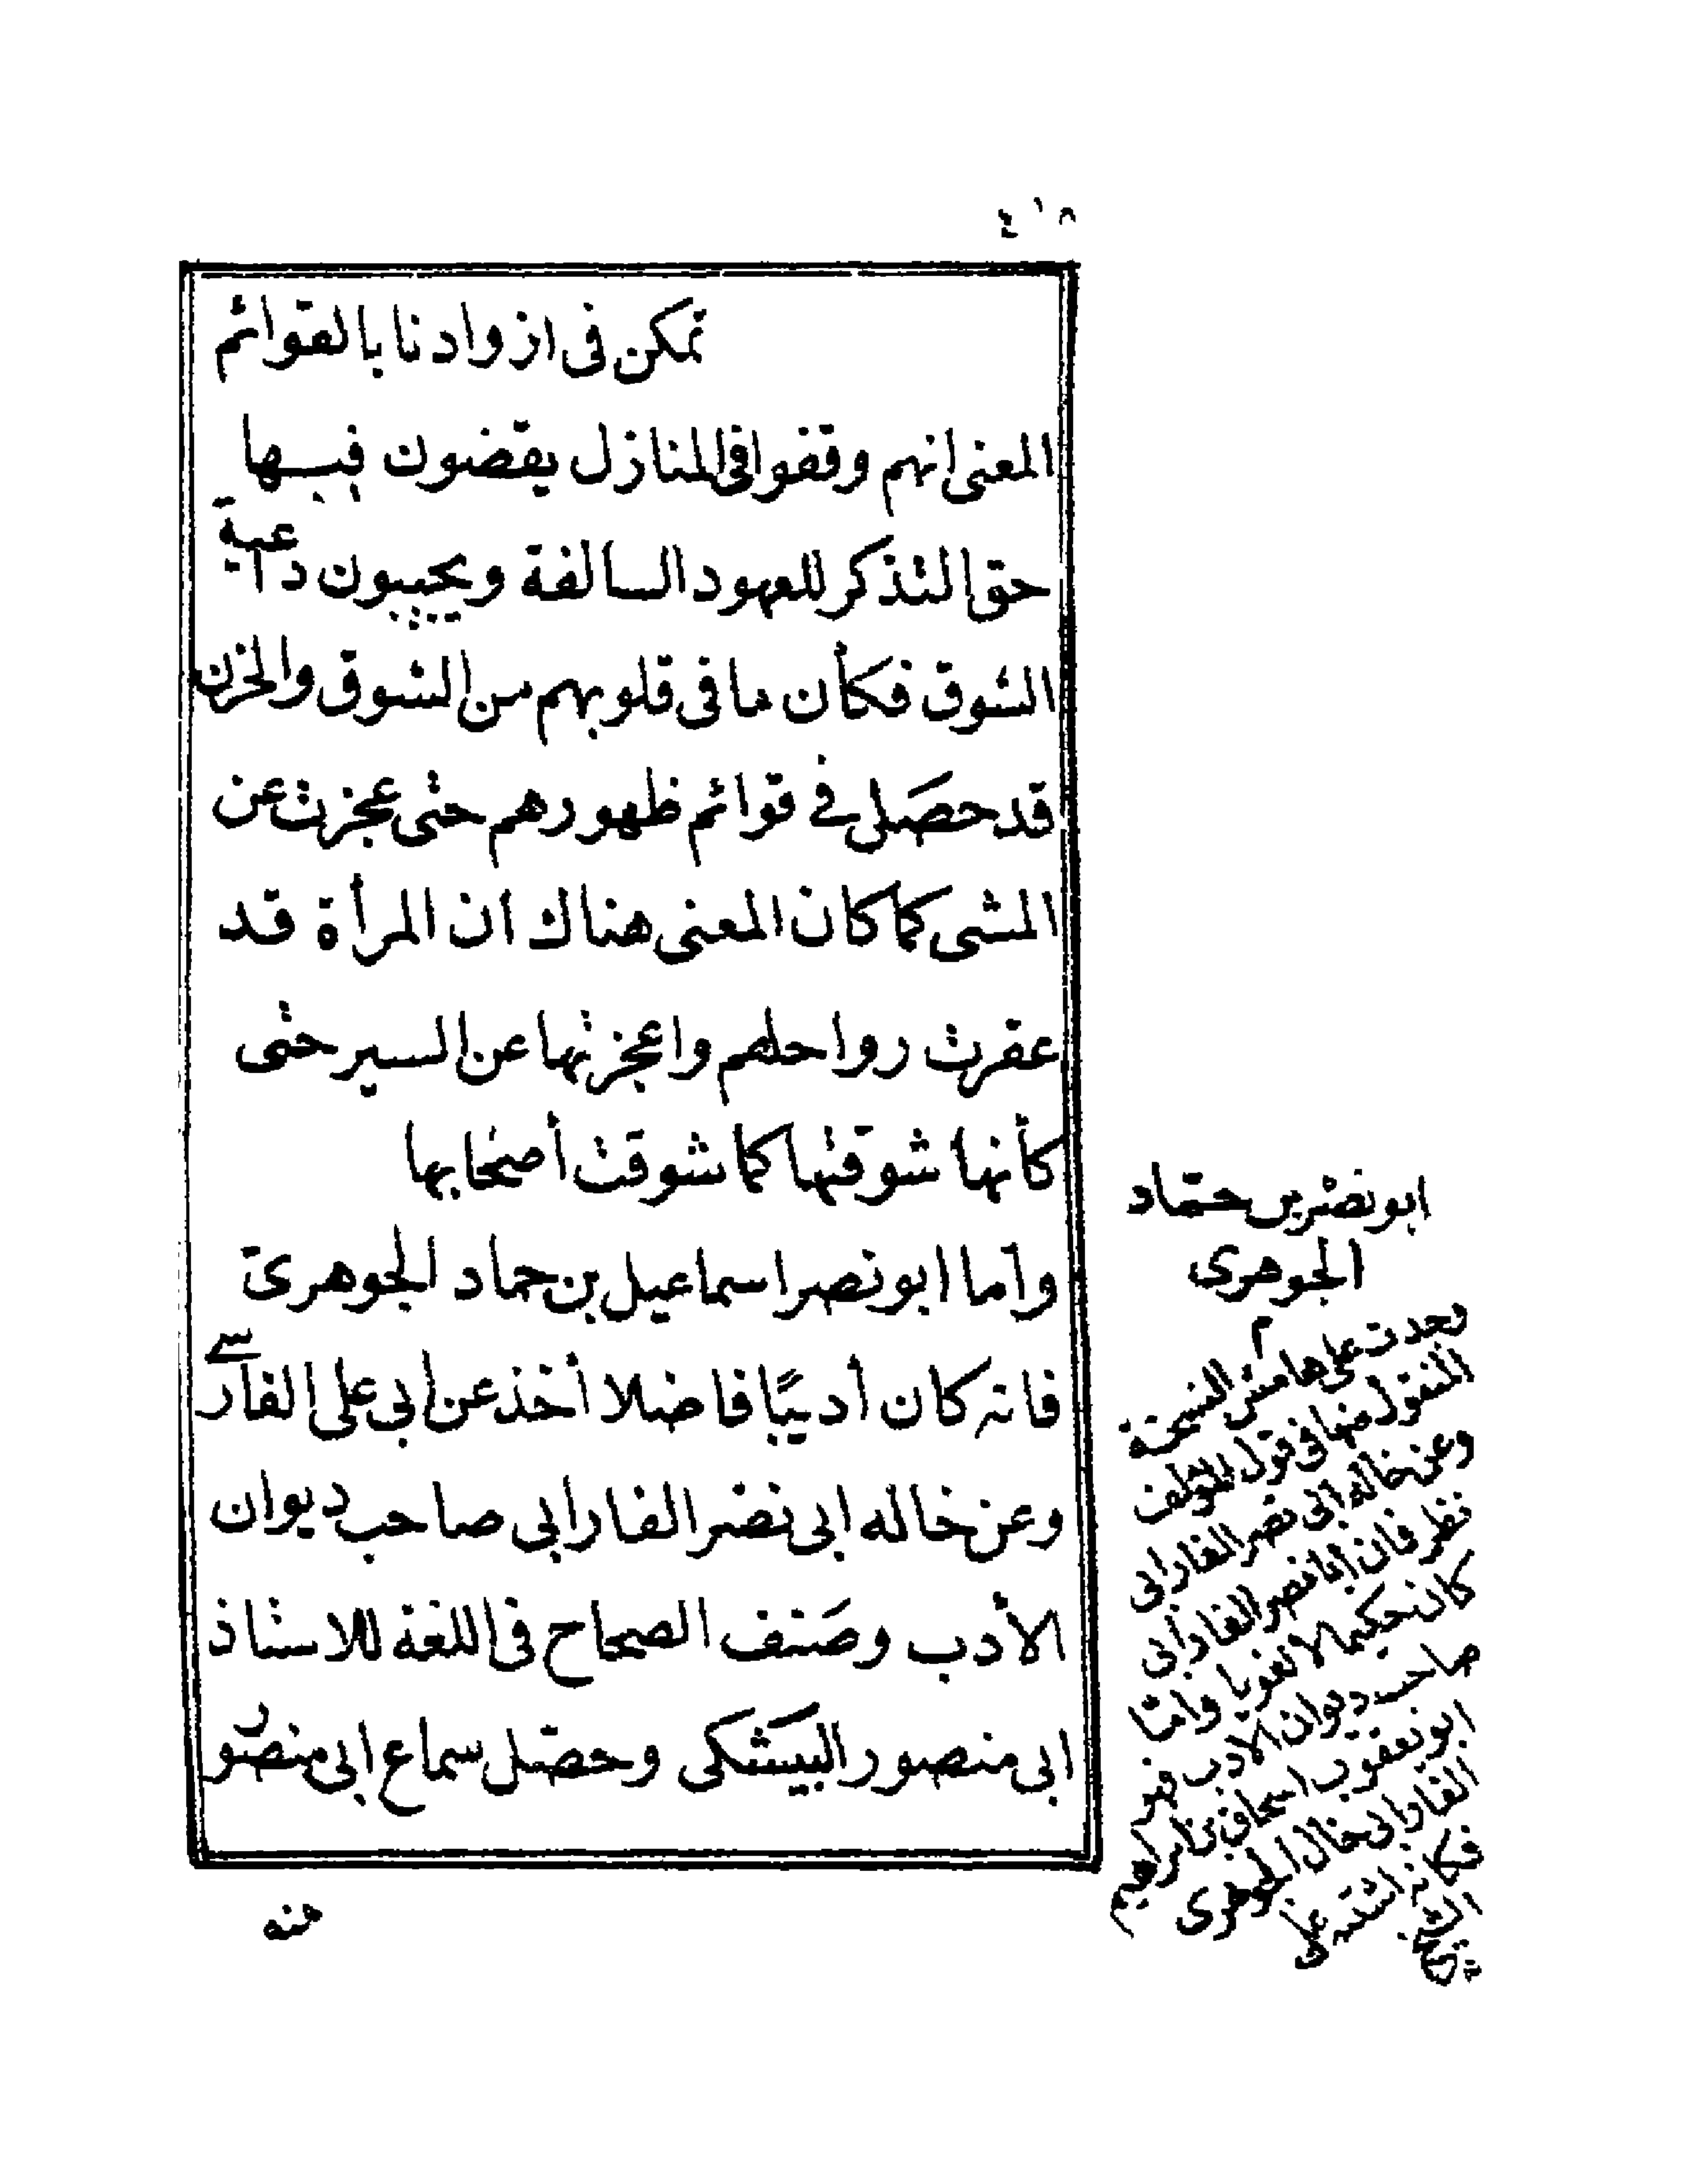 تمكن فى ازوادنا بالقوائم
المعنى انهم وقفوا فى المنازل يقضون فيها
حق التذكر للعهود السالفة ويجيبون داعية
الشوق فكأن ما فى قلوبهم من الشوق والحزن
قد حصل فى قوائم ظهورهم حتى عجزت عن
المشى كما كان المعنى هناك ان المرأة قد
عقرت رواحلهم واعجزتها عن السير حتى
كأنها شوقتها كما شوقت أصحابها
واما ابو نصر اسماعيل بن حماد الجوهرى
فانه كان أديبًا فاضلا أخذ عن ابى على الفارسى
وعن خاله ابى نصر الفارابى صاحب ديوان
الأدب وصنف الصحاح فى اللغة للاستاذ
ابى منصور البيشكى وحصل سماع ابى منصور
منه
ابو نصر بن حماد
الجوهرى
م
على هامش النسخة
المنقول منها فى قول المؤلف
وعن خاله ابى نصر الفارابى
نظر فان ابا نصر الفارابى
كان حكيما لا لغويا واما
صاحب ديوان الادب فهو
ابو يعقوب اسحاق بن ابراهيم
الفارابى خال الجوهرى
فكانه اشتبه على